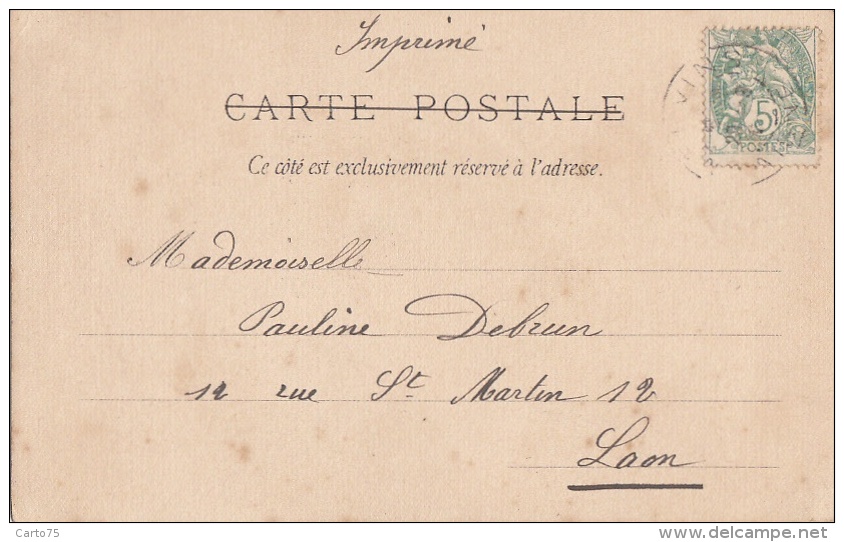 Imprimé
CARTE POSTALE
Ce côté est exclusivement réservé à l'adresse.
5
POSTES
Mademoiselle
Pauline Debrun
12 rue St Martin 12
Laon
Carto75
www.delcampe.net